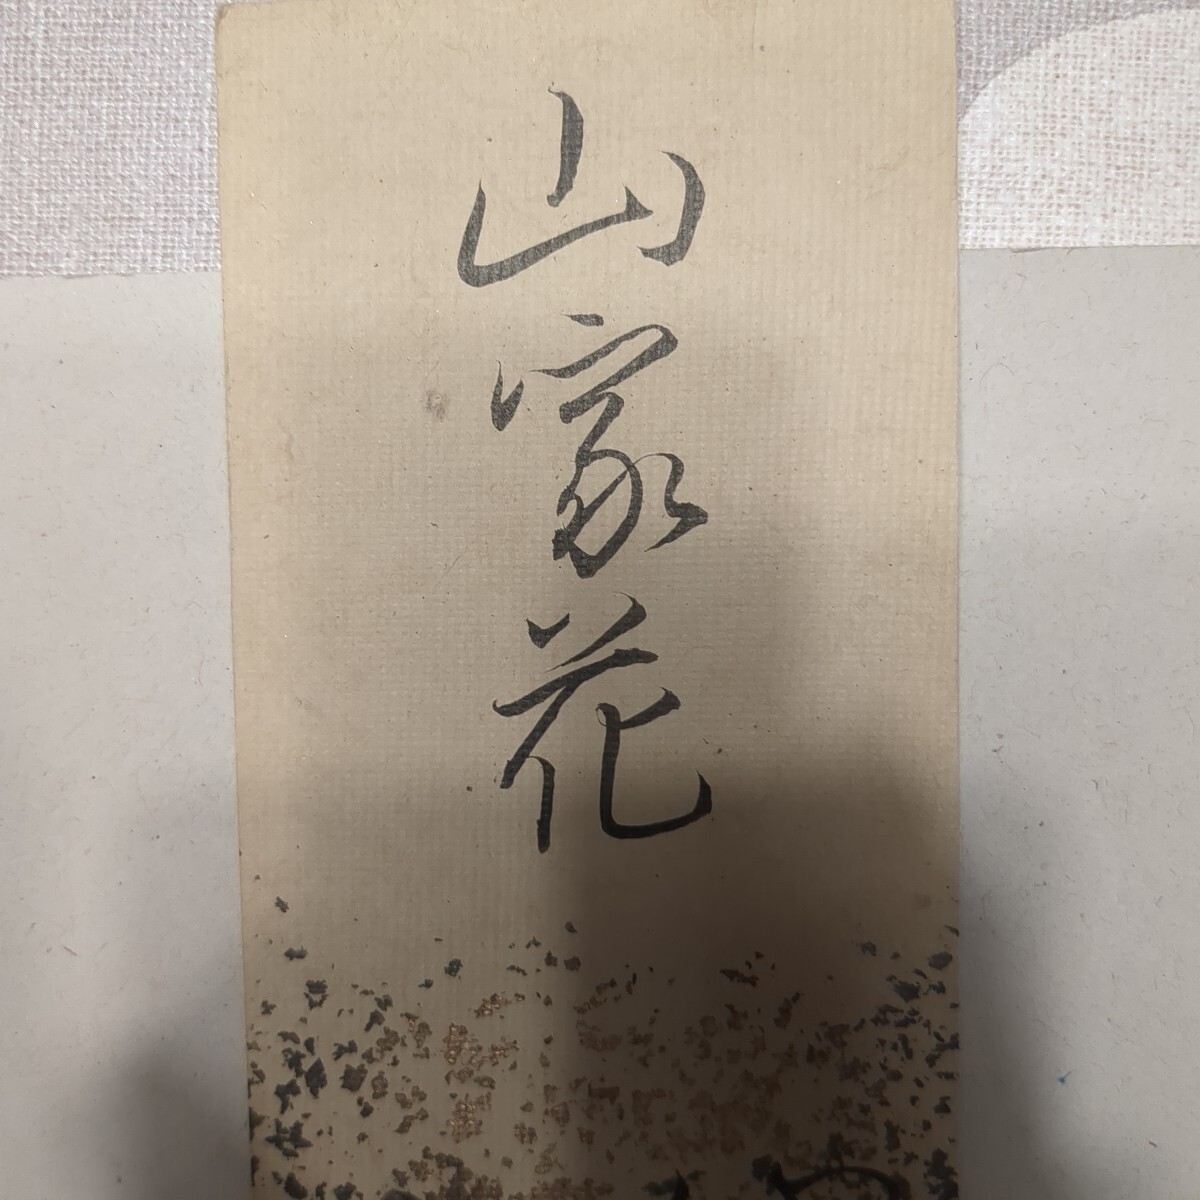 山家花